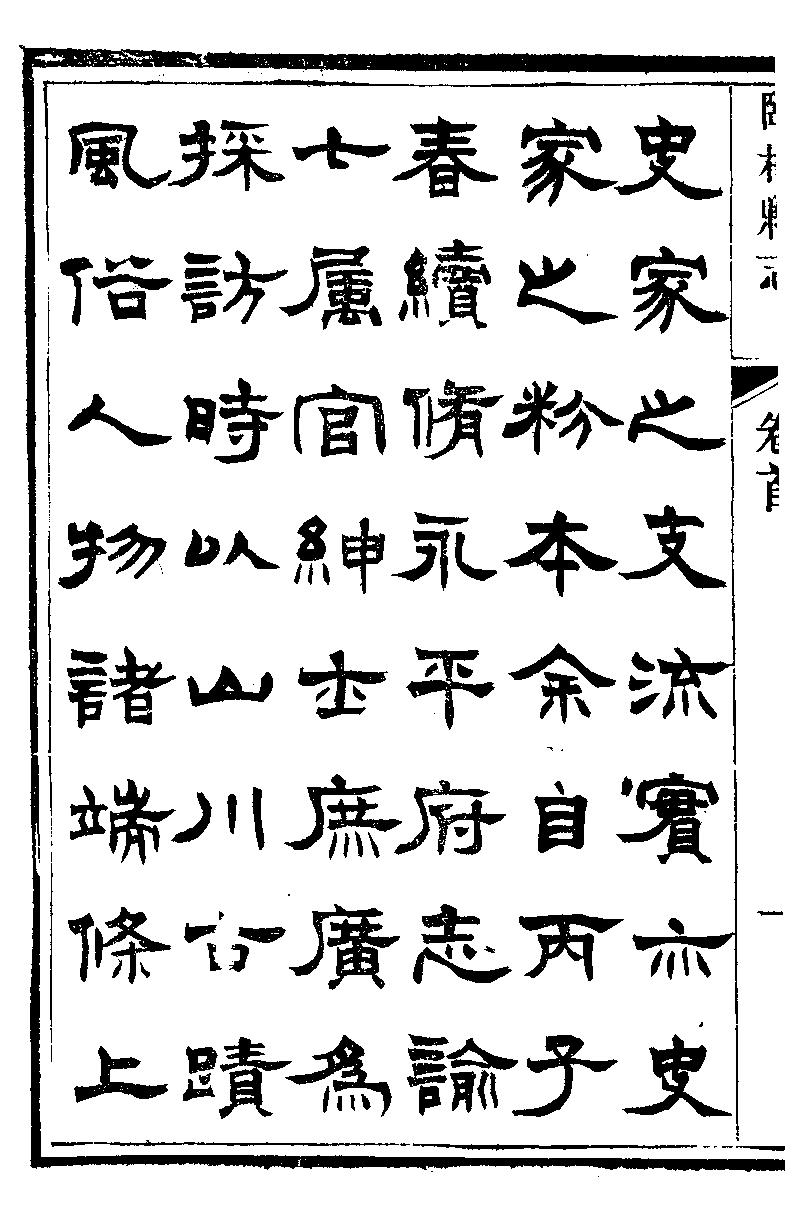 臨榆縣志
卷首
一
史家之支流實亦史
家之粉本余自丙子
春續脩永平府志諭
七属官紳士庶廣爲
採訪時以山川古蹟
風俗人物諸端條上